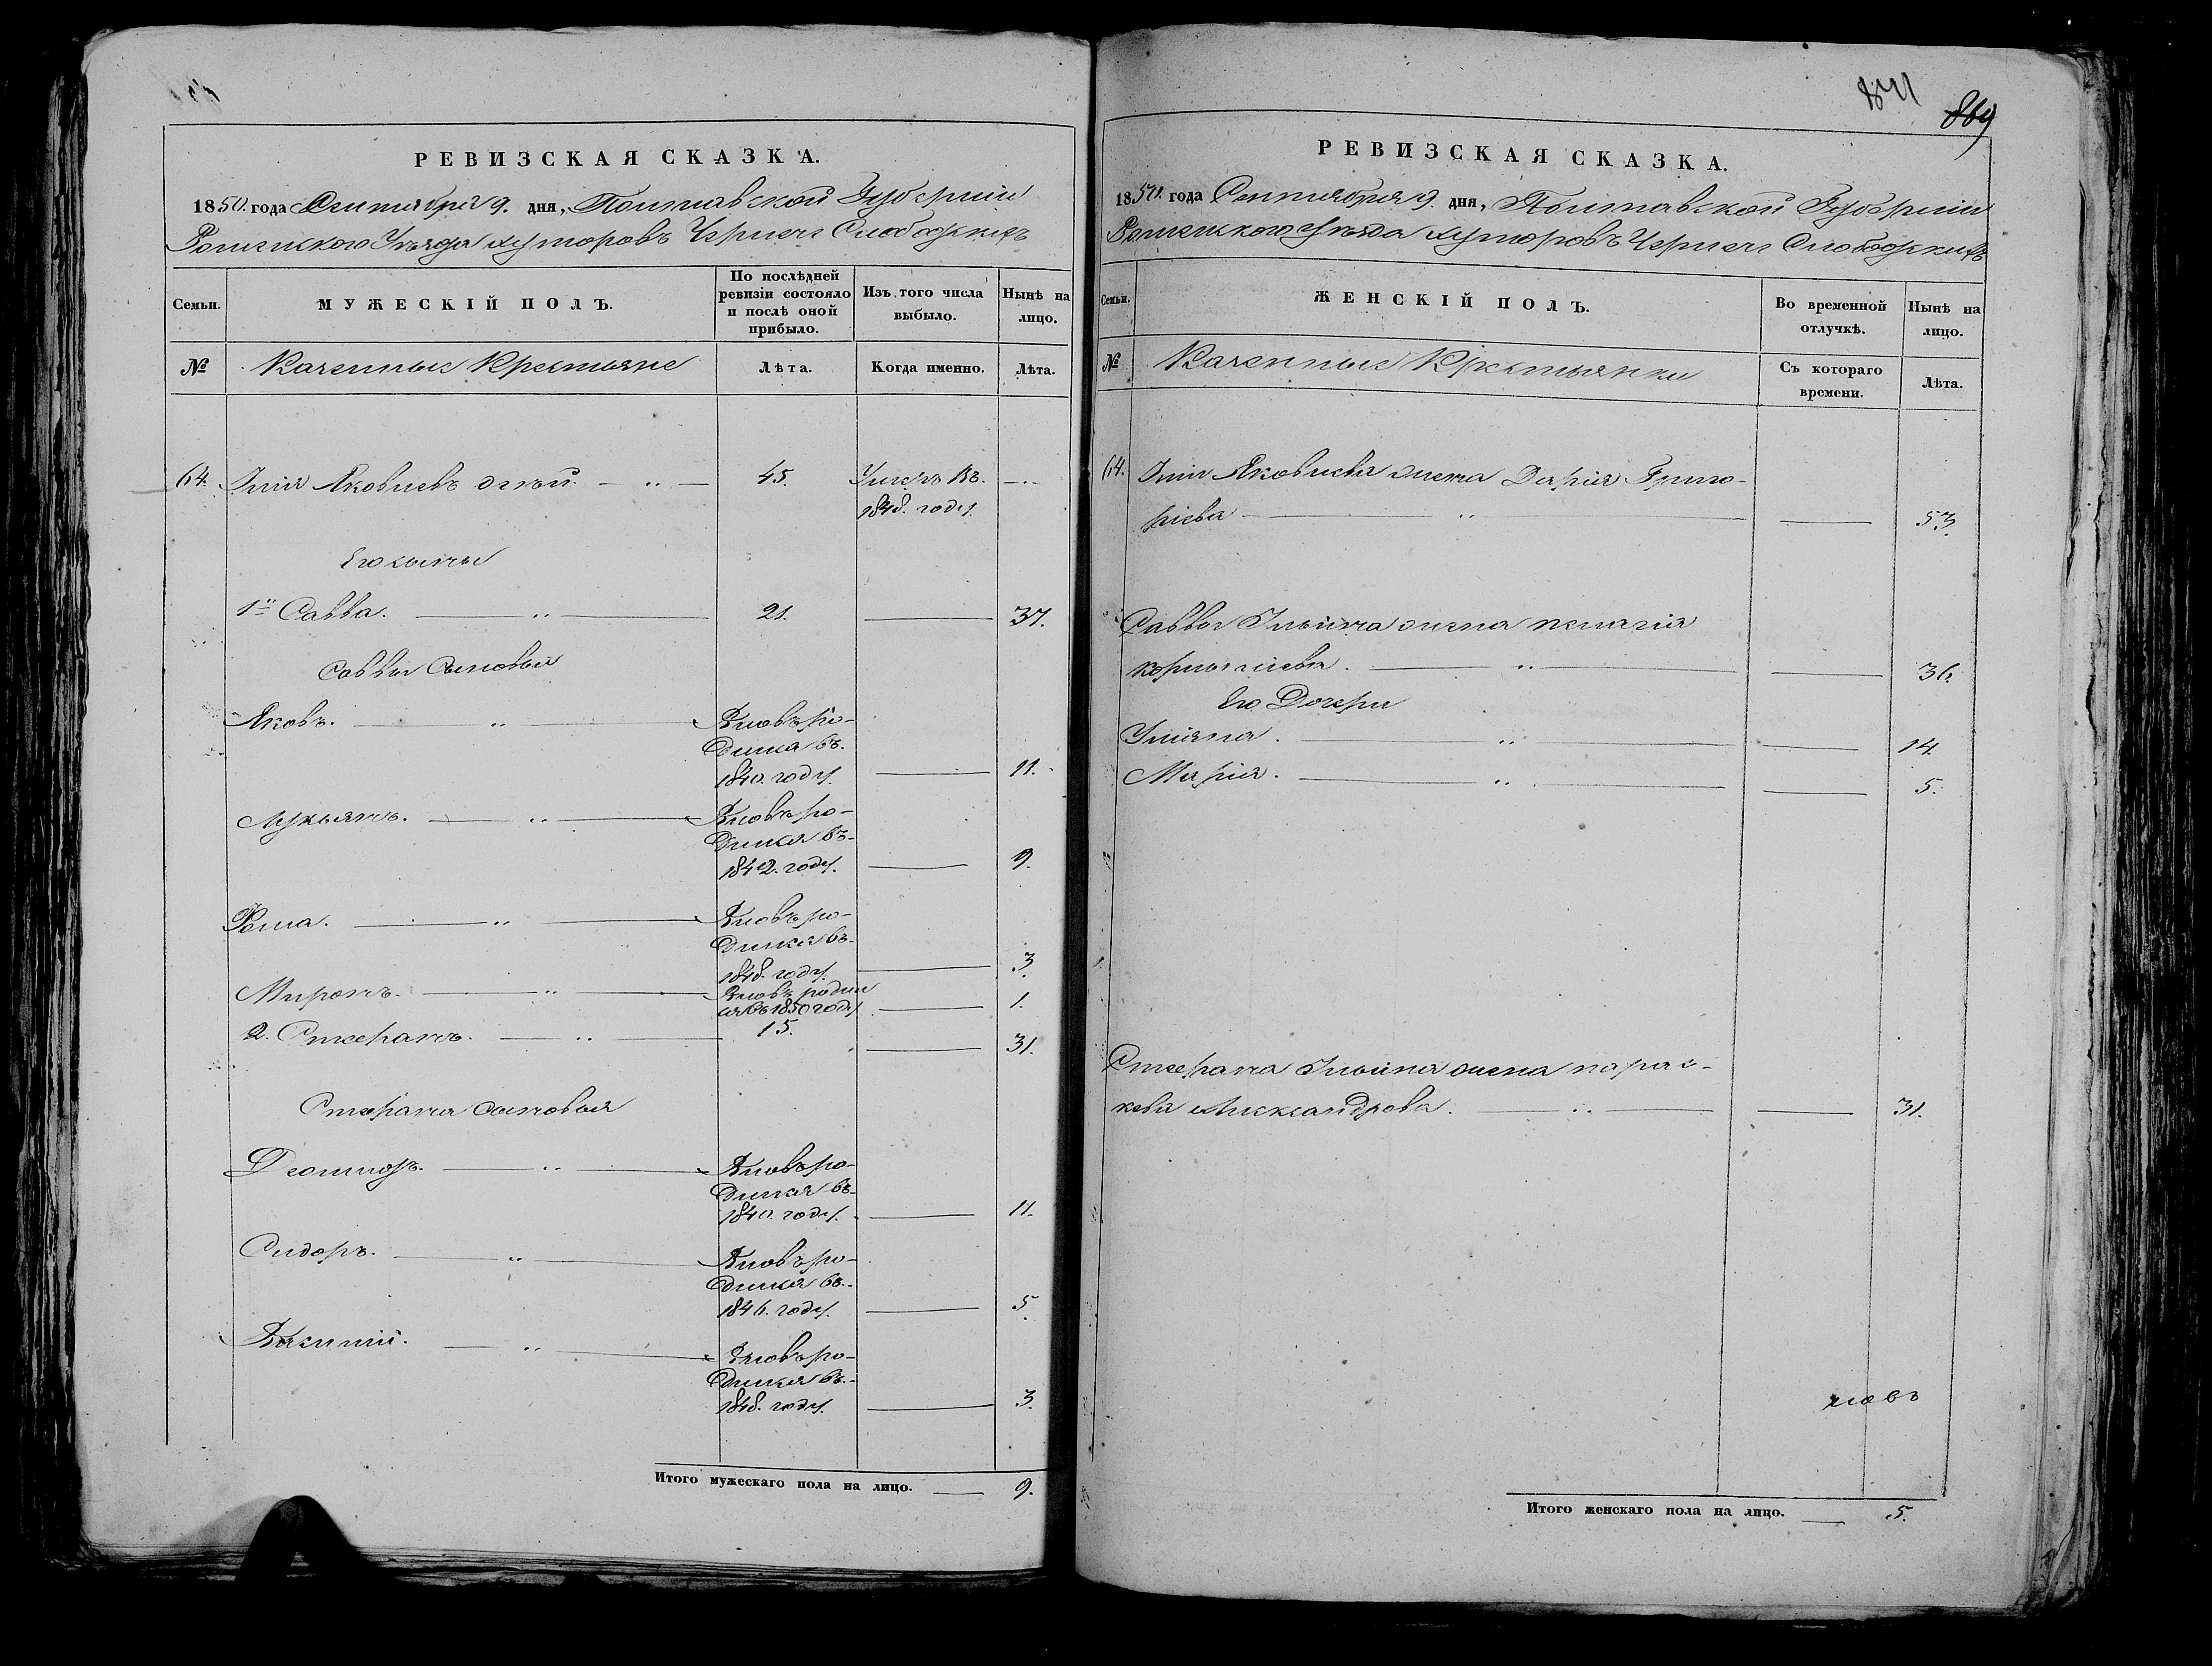 РЕВИЗСКАЯ СКАЗКА.
1850. года Сентября 9. дня, Полтавской Губернии
Роменского Уѣзда хуторовъ Чернечи Слободскихъ
Семьи.
МУЖЕСКІЙ ПОЛЪ.
По послѣдней ревизіи состояло и послѣ оной прибыло.
Изъ того числа выбыло.
Нынѣ на лицо.
№
Казенные Крестьяне
Лѣта.
Когда именно.
Лѣта.
64. Илія Яковлевъ 45. Умеръ въ
1848. году
Его сыны
1й Савва. 21. 37.
Саввы Сыновья
Яковъ. Вновь ро-
дился въ
1840. году 11.
Лукьянъ. Вновь ро-
дился въ
1842. году. 9.
Фома. Вновь ро-
дился въ
1848. году. 3
Миронъ. Вновь родил
ся въ 1850 году 1.
2. Стефанъ. 15. 31.
Стефана сыновья
Вновь ро-
дился въ
1840. году. 11.
Сидоръ. Вновь ро-
дился въ
1846. году. 5
Вновь ро-
дился въ
1848. году. 3.
Итого мужескаго пола на лицо. 9.
841
869
РЕВИЗСКАЯ СКАЗКА.
1850. года Сентября 9. дня, Полтавской Губерніи
Роменского Уѣзда хуторовъ Чернечи Слободскихъ
Семьи.
ЖЕНСКІЙ ПОЛЪ.
Во временной отлучкѣ.
Нынѣ на лицо.
№
Казенные Крестьянки
Съ котораго времени.
Лѣта.
64. Иліи Яковлева жена Дарія Григо-
ріева 53
Саввы Ильина жена пелагія
корнилиева. 36.
Его Дочери
Уліяна. 14
Марія. 5.
Стефана Ильина жена парас-
кева Александрова. 31.
Итого женскаго пола на лицо. 5.